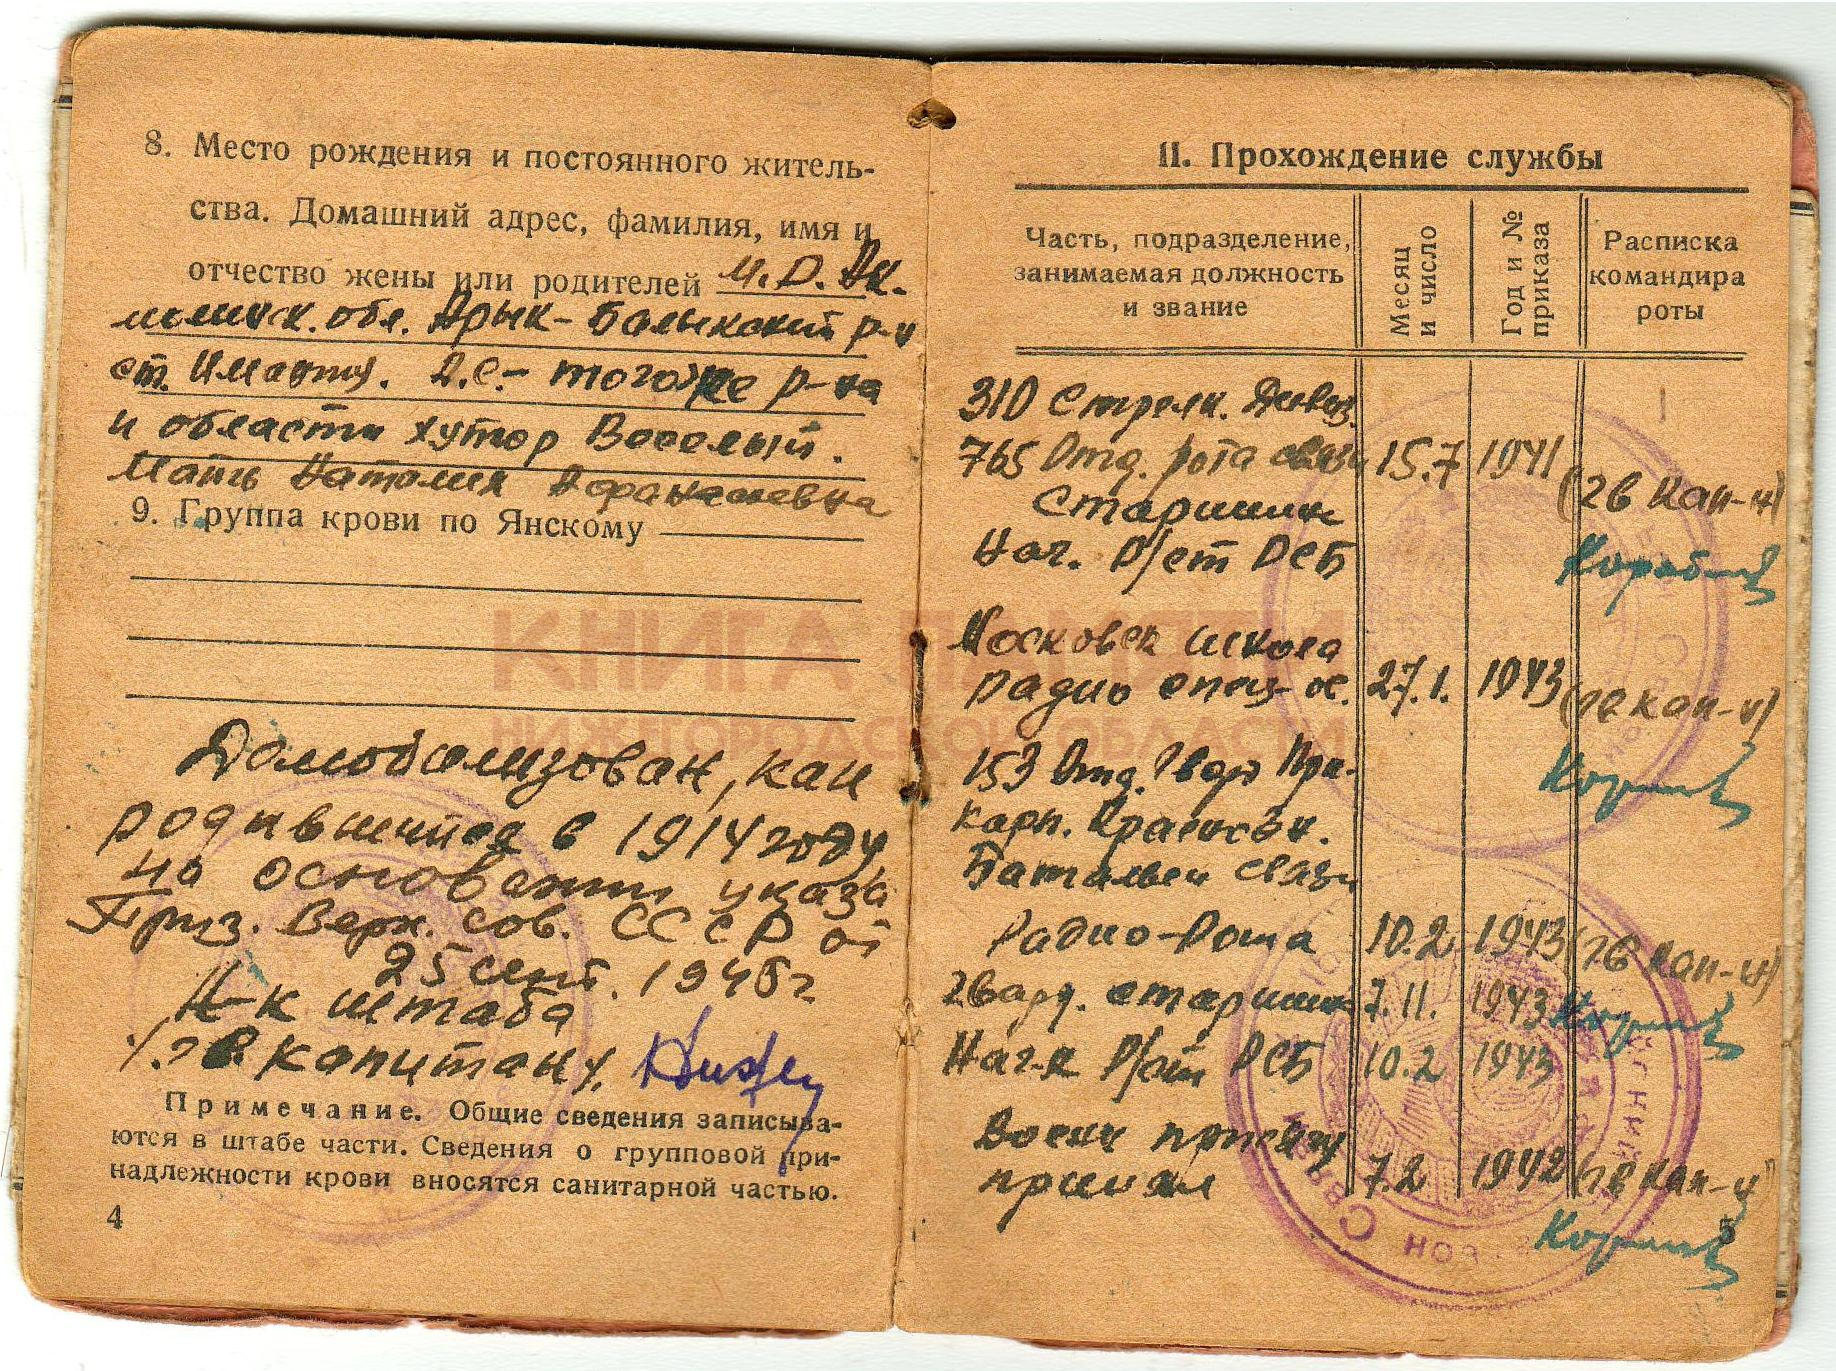 8. Место рождения и постоянного житель-
ства. Домашний адрес, фамилия, имя и
отчество жены или родителей М.Р. Ак-
молинск. обл. Арык-Балыкский р-н
ст. Имантау. Д.С.- тогоже р-на
и области хутор Веселый.
Мать Наталия Афанасьевна
9. Группа крови по Янскому
Демобилизован, как
родившийся в 1914 году
на основании указа
През. Верх. Сов. СССР от
25 сент. 1945 г.
Н-к штаба
гв. капитан
Примечание. Общие сведения записыва-
ются в штабе части. Сведения о групповой при-
надлежности крови вносятся санитарной частью.
4
II. Прохождение службы
Часть, подразделение,
занимаемая должность
и звание
Месяц
и число
Год и №
приказа
Расписка
командира
роты
310 Стрелк. Дивиз.
765 Отд. рота связи 15.7 1941
Старшина (гв кап-н)
Нач. Р/ст РСБ
Московск школа
радио спец-ов. 27.1. 1943 (гв кап-н)
153 Отд. Гвар При-
карп. Краснозн.
Батальон связи
Радио-Рота 10.2 1943 (гв кап-н)
Гвард. старшина 7.11. 1943
Нач-к Р/ст РСБ 10.2 1943
Воен присягу
принял 7.2 1942 гв кап-н
5
КНИГА ПАМЯТИ
НИЖГОРОДСКОЙ ОБЛАСТИ